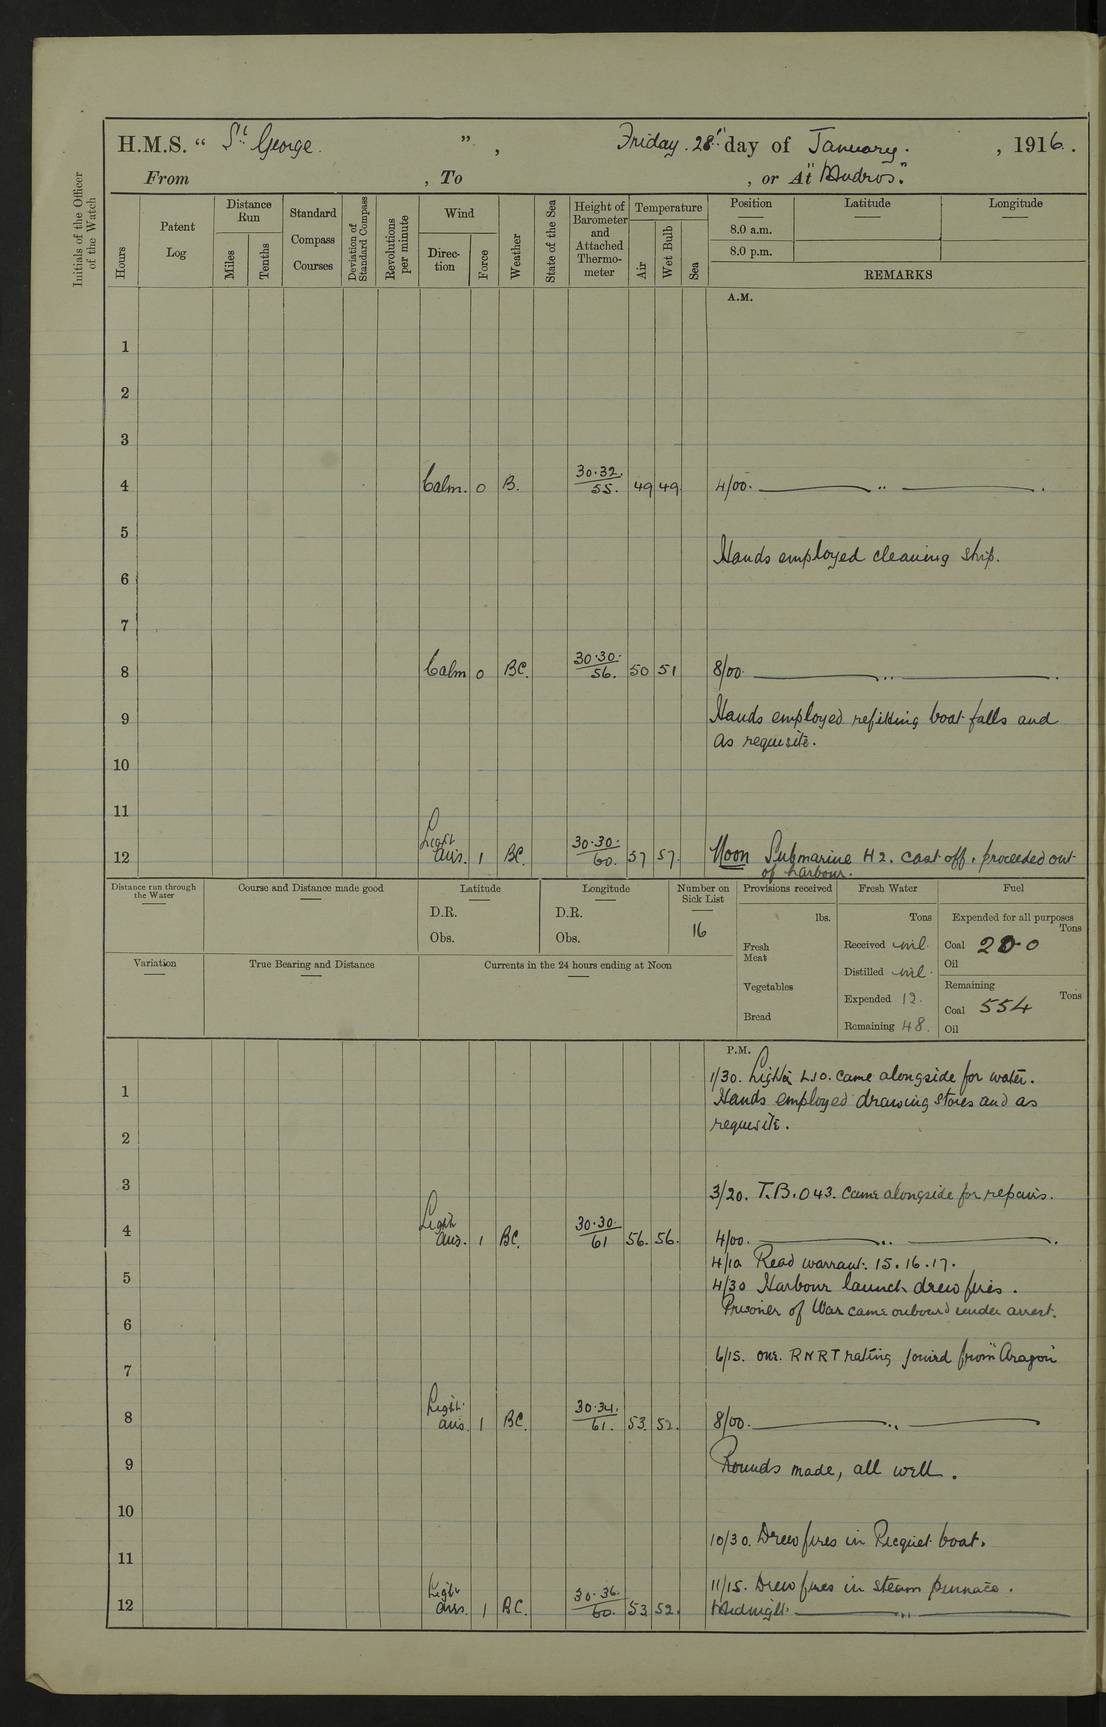 H.M.S. " St George ", Friday. 28th day of January. , 1916.
From , To , or At "Mudros."
Initials of the Officer of the Watch
Hours
Patent Log
Distance Run
Miles
Tenths
Standard Compass Courses
Deviation of Standard Compass
Revolutions per minute
Wind
Direction
Force
Weather
State of the Sea
Height of Barometer and Attached Thermometer
Temperature
Air
Wet Bulb
Sea
Position Latitude Longitude
8.0 a.m.
8.0 p.m.
REMARKS
A.M.
1
2
3
4 Calm. 0 B. 30.32./55. 49 49. 4/00. ——— " ———.
5
Hands employed cleaning ship.
6
7
8 Calm 0 BC. 30.30./56. 50 51 8/00. ——— " ———.
9 Hands employed refitting boat falls and
as requisite.
10
11
12 Light airs. 1 BC. 30.30./60. 57 57. Noon Submarine H2. cast off. proceeded out
of harbour.
Distance run through the Water
Course and Distance made good
Latitude
D.R.
Obs.
Longitude
D.R.
Obs.
Number on Sick List
16
Provisions received
lbs.
Fresh Meat
Vegetables
Bread
Fresh Water
Tons
Received nil.
Distilled nil.
Expended 12.
Remaining 48.
Fuel
Expended for all purposes
Tons
Coal 20.0
Oil
Remaining
Tons
Coal 554
Oil
Variation
True Bearing and Distance
Currents in the 24 hours ending at Noon
P.M.
1/30. Lighter came alongside for water.
1 Hands employed drawing stores and as
requisite.
2
3 3/20. T.B. 043. came alongside for repairs.
4 Light airs. 1 BC. 30.30./61 56. 56. 4/00. ——— " ———.
4/10 Read warrant. 15. 16. 17.
5 4/30 Harbour launch drew fires.
Prisoner of War came onboard under arrest.
6
6/15. one. RNRT rating joined from "Aragon"
7
8 Light airs. 1 BC. 30.34./61. 53. 52. 8/00. ——— " ———
9 Rounds made, all well.
10
10/30. Drew fires in Picquet boat.
11
11/15. Drew fires in steam pinnace.
12 Light airs. 1 BC. 30.36./60. 53 52. Midnight. ——— " ———